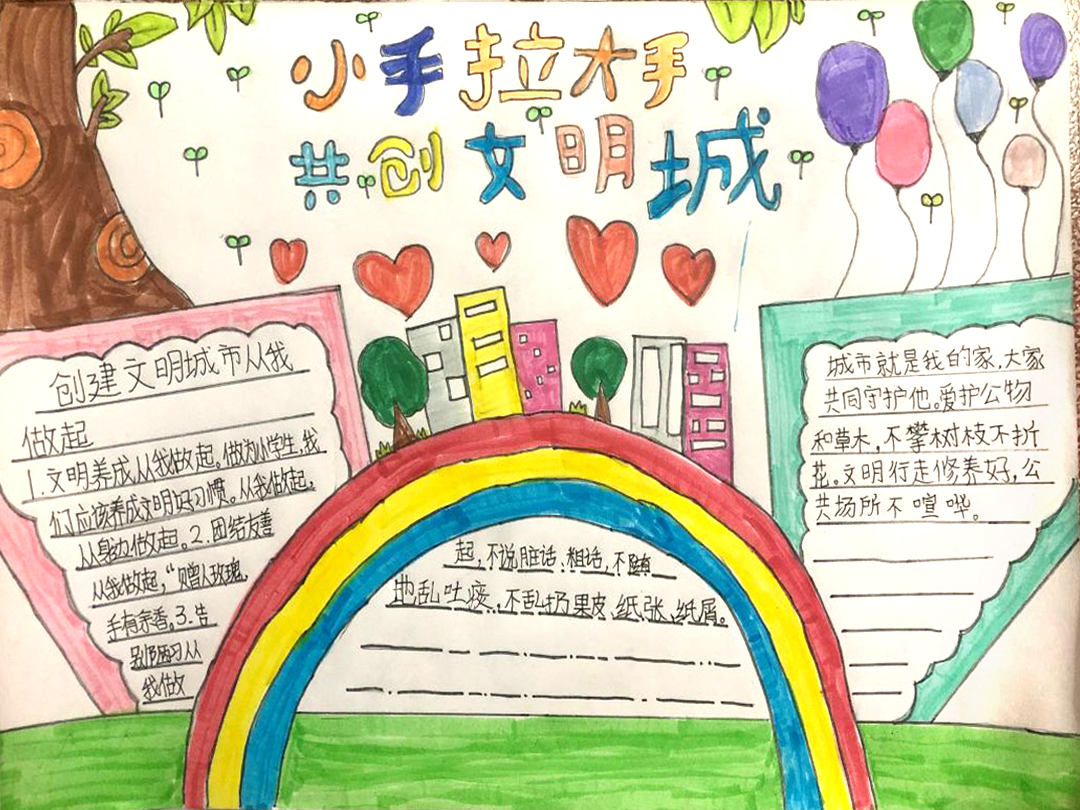 小手拉大手
共创文明城
创建文明城市从我
做起
1.文明养成从我做起。做为小学生,我
们应该养成文明好习惯。从我做起,
从身边做起。2.团结友善
从我做起,“赠人玫瑰,
手有余香。3.告
别陋习从
我做
起,不说脏话、粗话,不随
地乱吐痰,不乱扔果皮、纸张、纸屑。
城市就是我的家,大家
共同守护他。爱护公物
和草木,不攀树枝不折
花。文明行走修养好,公
共场所不喧哗。